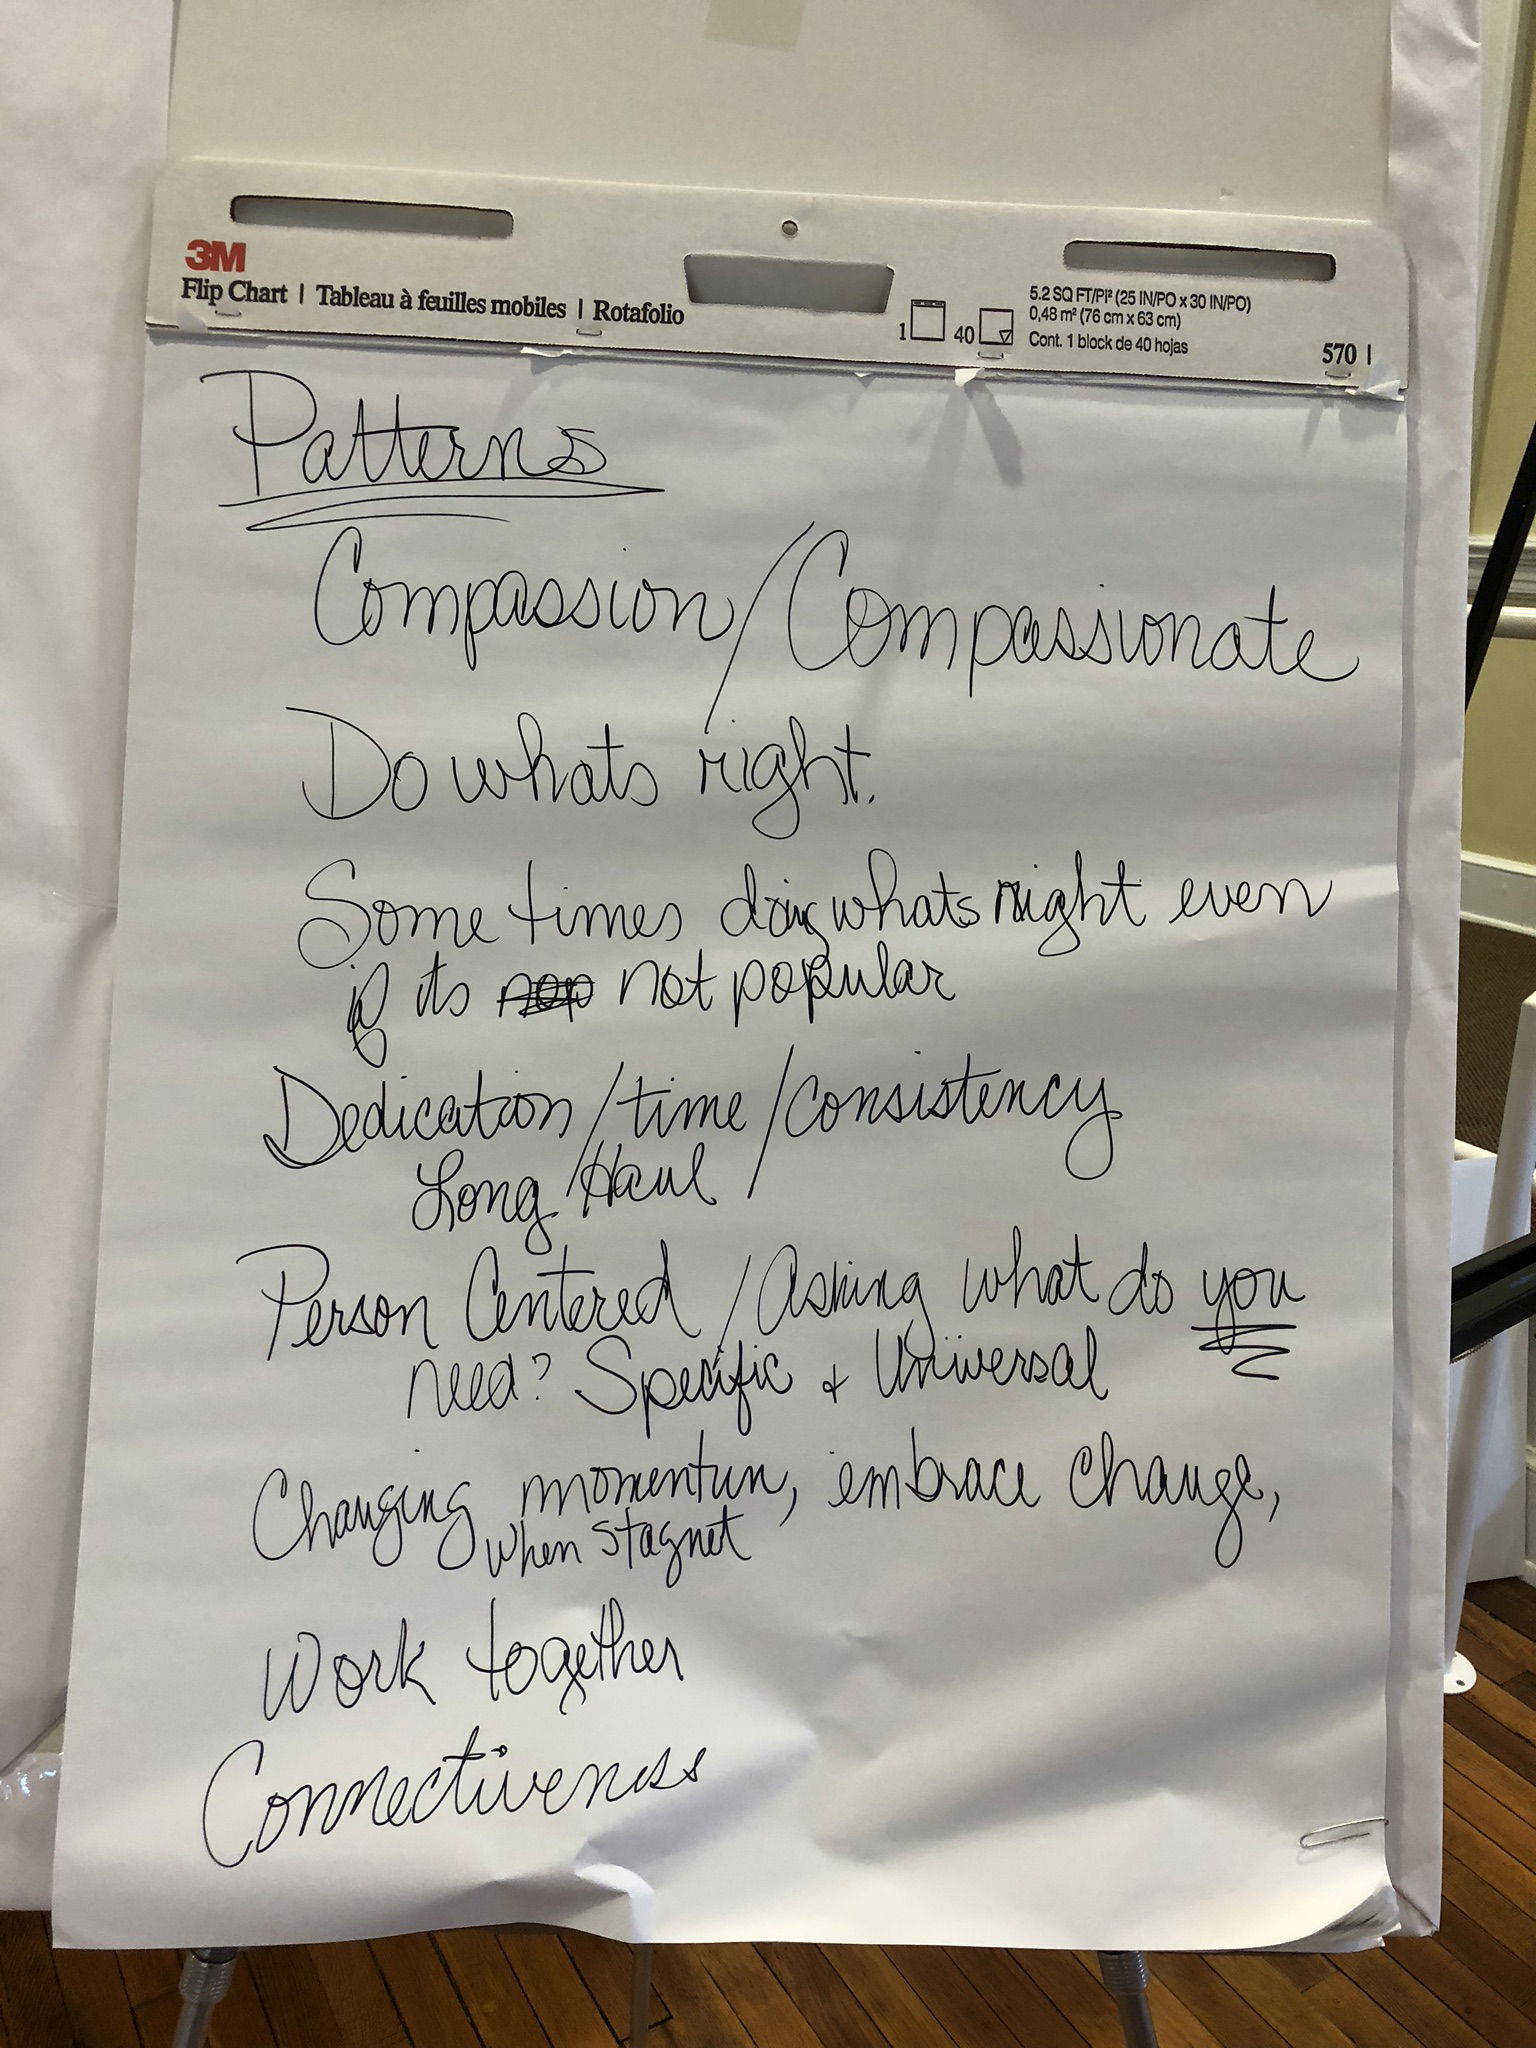 3M
Flip Chart | Tableau à feuilles mobiles | Rotafolio
1 40
5.2 SQ FT/PI² (25 IN/PO x 30 IN/PO)
0,48 m² (76 cm x 63 cm)
Cont. 1 block de 40 hojas
570 |
Patterns
Compassion/Compassionate
Do whats right.
Some times doing whats right even
if its not popular
Dedication/time/consistency
Long Haul
Person Centered / Asking what do you
need? Specific + Universal
Changing momentum, embrace change,
when stagnet
Work together
Connectiveness